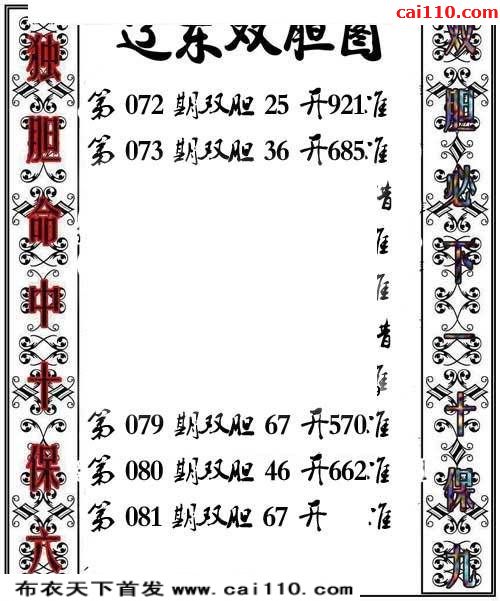 cai110.com
辽东双胆图
独胆命中十保六
第 072 期双胆 25 开921准
第 073 期双胆 36 开685准
第 079 期双胆 67 开570准
第 080 期双胆 46 开662准
第 081 期双胆 67 开 准
双胆必下一十保九
布衣天下首发 www.cai110.com